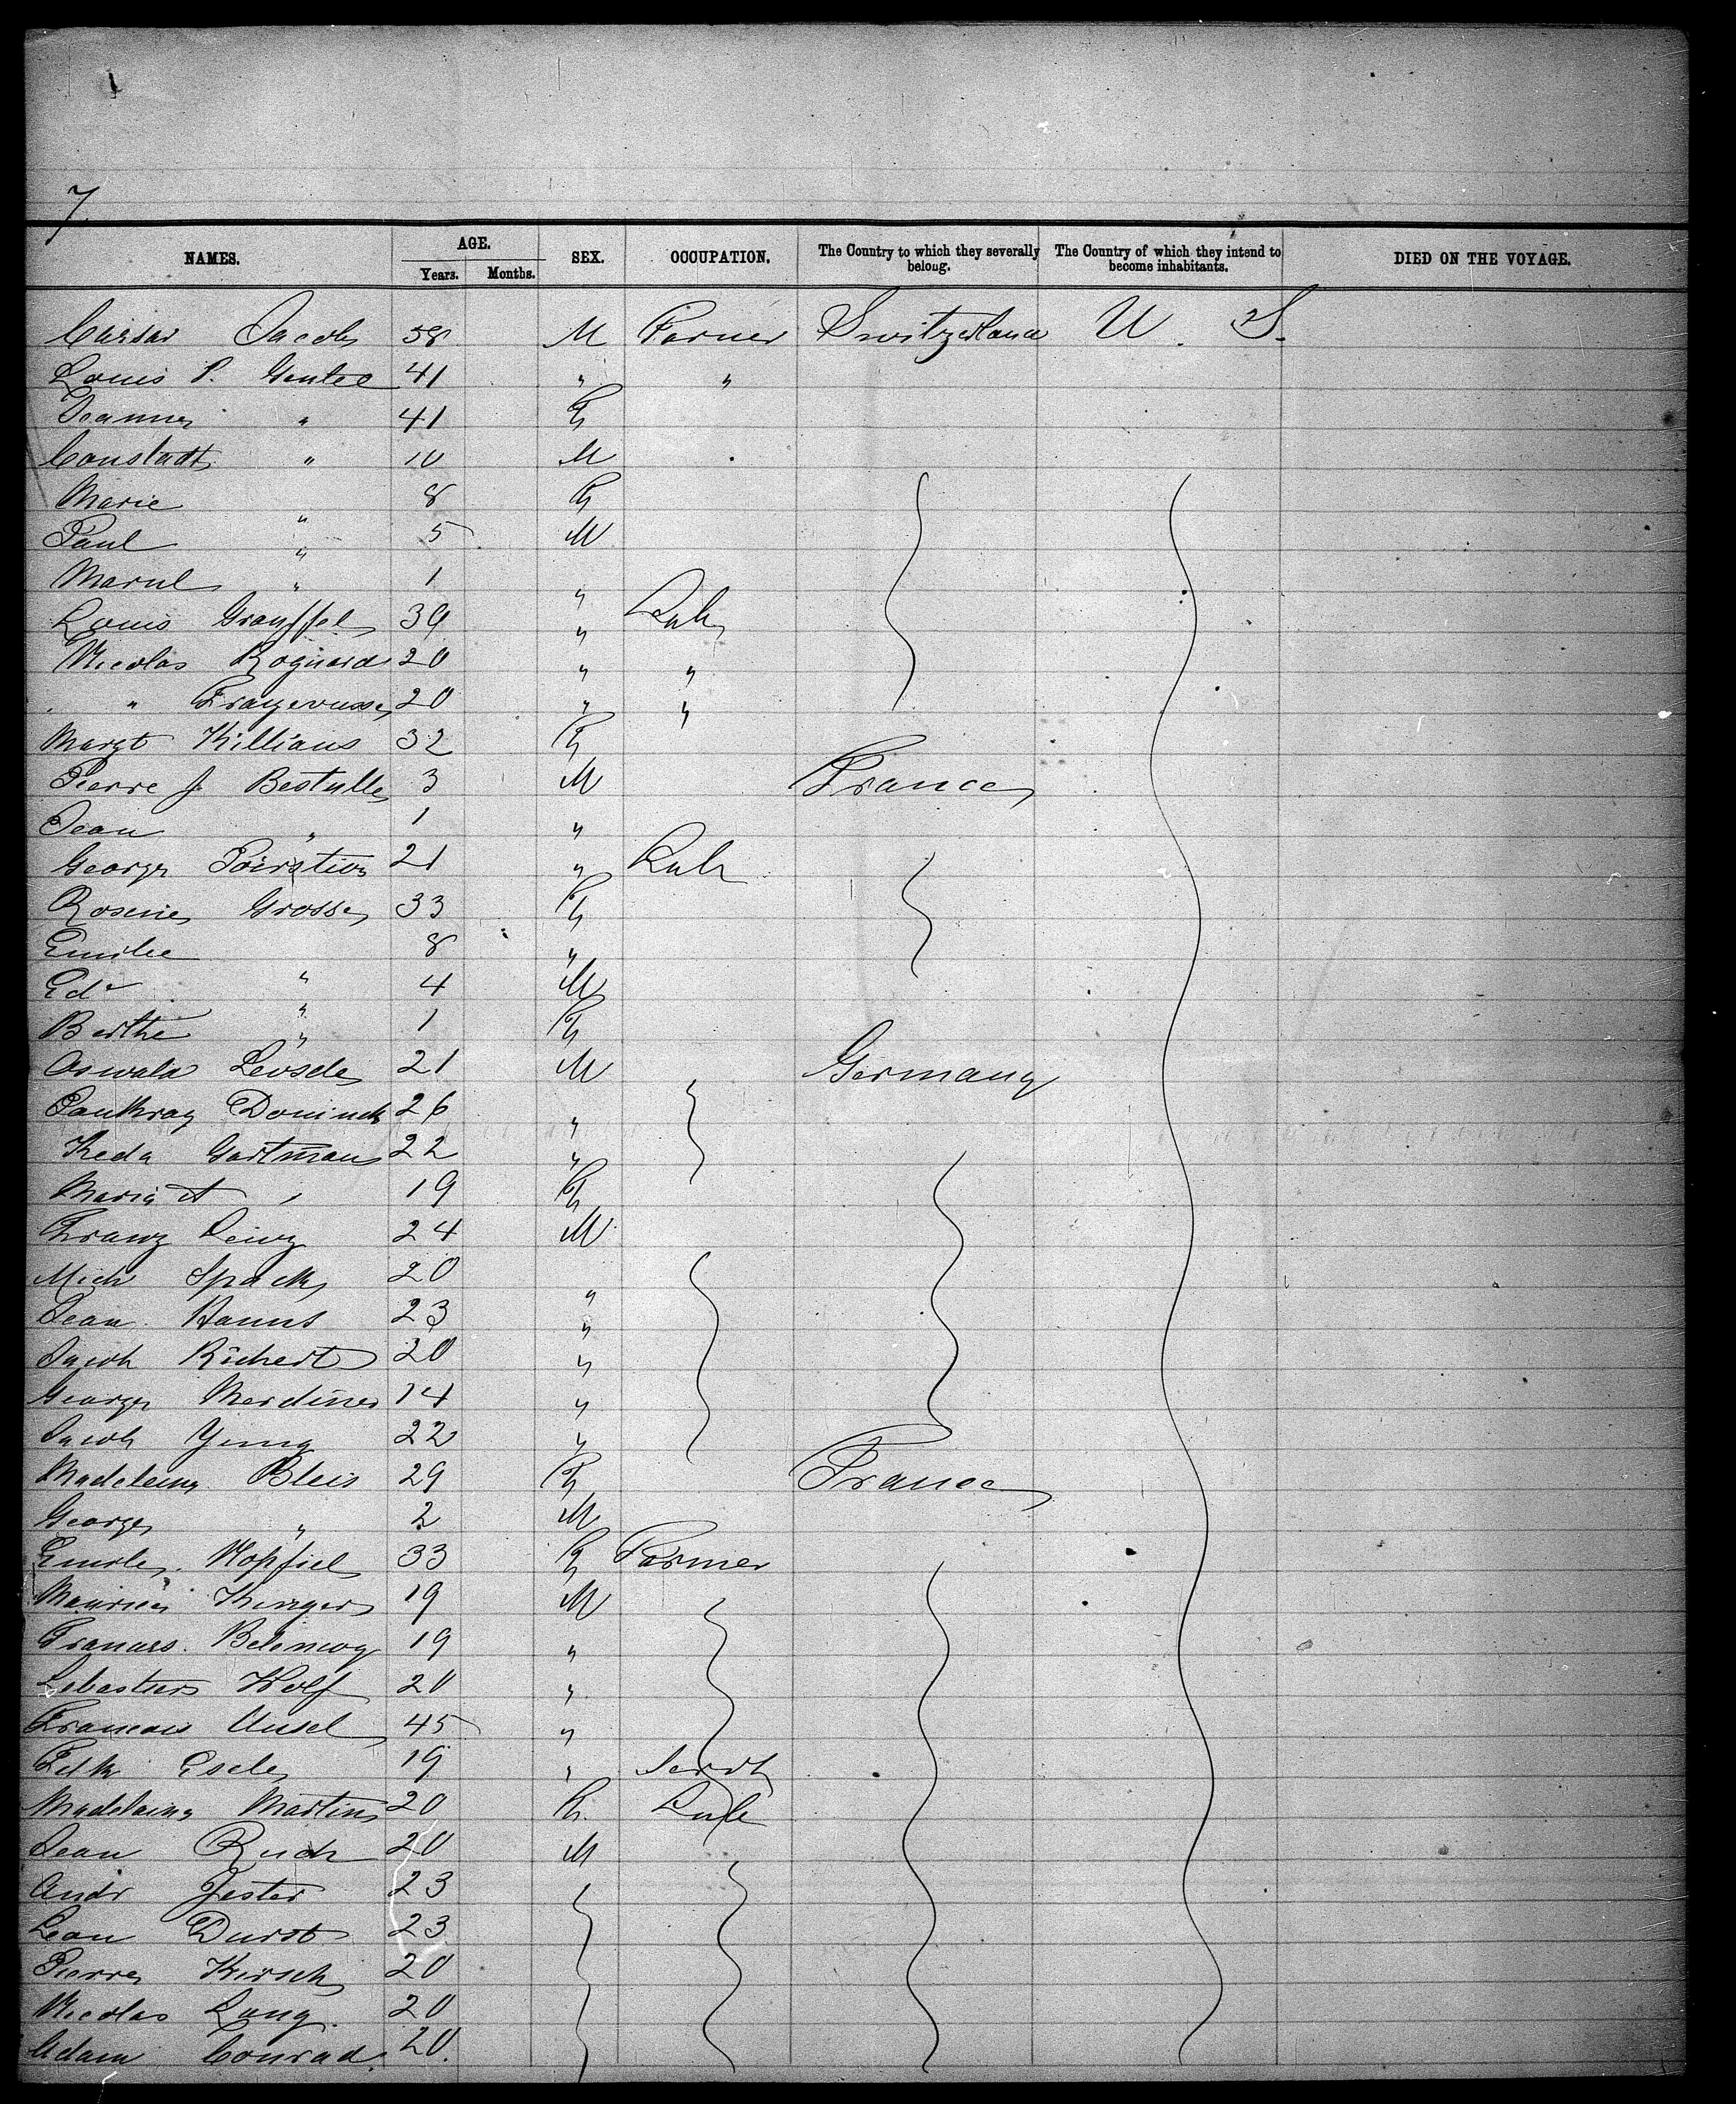 7
NAMES. AGE. SEX. OCCUPATION. The Country to which they severally belong. The Country of which they intend to become inhabitants. DIED ON THE VOYAGE.
Years. Months.
Caesar Jacob 58 M Farmer Switzerland U. S.
Louis P. Gentec 41 " "
Jeanne " 41 F
Constadt " 10 M
Marie " 8 F
Paul " 5 M
" 1 "
Louis 39 " Lab
Nicolas Rognard 20 " "
" 20 " "
Margt Killians 32 F
Pierre J Bestulle 3 M France
Jean " 1 "
George 21 " Lab
Rosine Grosse 33 F
Emilie " 8 "
Ed " 4 M
Berthe " 1 F
Oswald 21 M Germany
Pankray Dominck 26 "
Gartman 22 "
Maria A " 19 F
Franz 24 M
Mich Spack 20 "
Jean Hanns 23 "
Jacob Richert 20 "
George Merdiner 14 "
Jacob Yung 22 "
Madeleine Bleis 29 F France
George " 2 M
Emile Hopfiel 33 F Farmer
Maurice 19 M
Francois 19 "
Sebastien Wolf 20 "
Francois Ansel 45 "
Esele 19 " Servt
Madelaine Martin 20 F. Lab
Jean Ruch 20 M
Andr Jester 23
Leon Durst 23
Pierre Kirsch 20
Nicolas Lang. 20
Adam Conrad. 20.